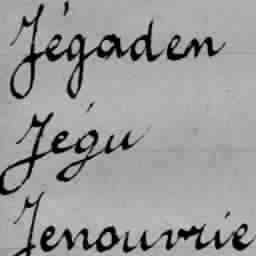 Jégaden
Jégu
Jenouvrie